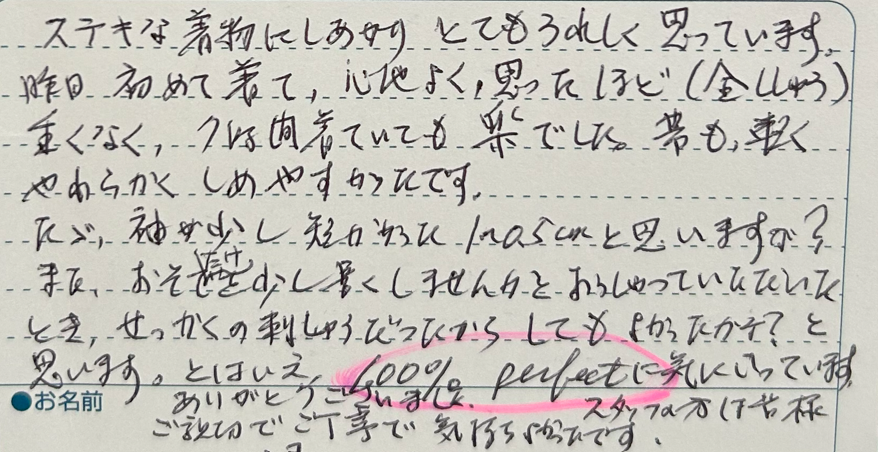 ステキな着物にしあがり とてもうれしく 思っています。
昨日 初めて着て, 心地よく, 思ったほど (全ししゅう)
重くなく, 7h間着ていても 楽でした。帯も, 軽く
やわらかく しめやすかったです。
ただ, 袖が少し 短かかった 1~0.5cmと思いますが?
また、おそで丈だけ少し長くしませんかとおっしゃっていただいた
とき, せっかくの刺しゅうだったから しても よかったかナ? と
思います。とはいえ, 100% perfectに気に入っています
●お名前 ありがとうございました。 スタッフの方は皆様
ご親切でご丁寧で 気持ちよかったです。